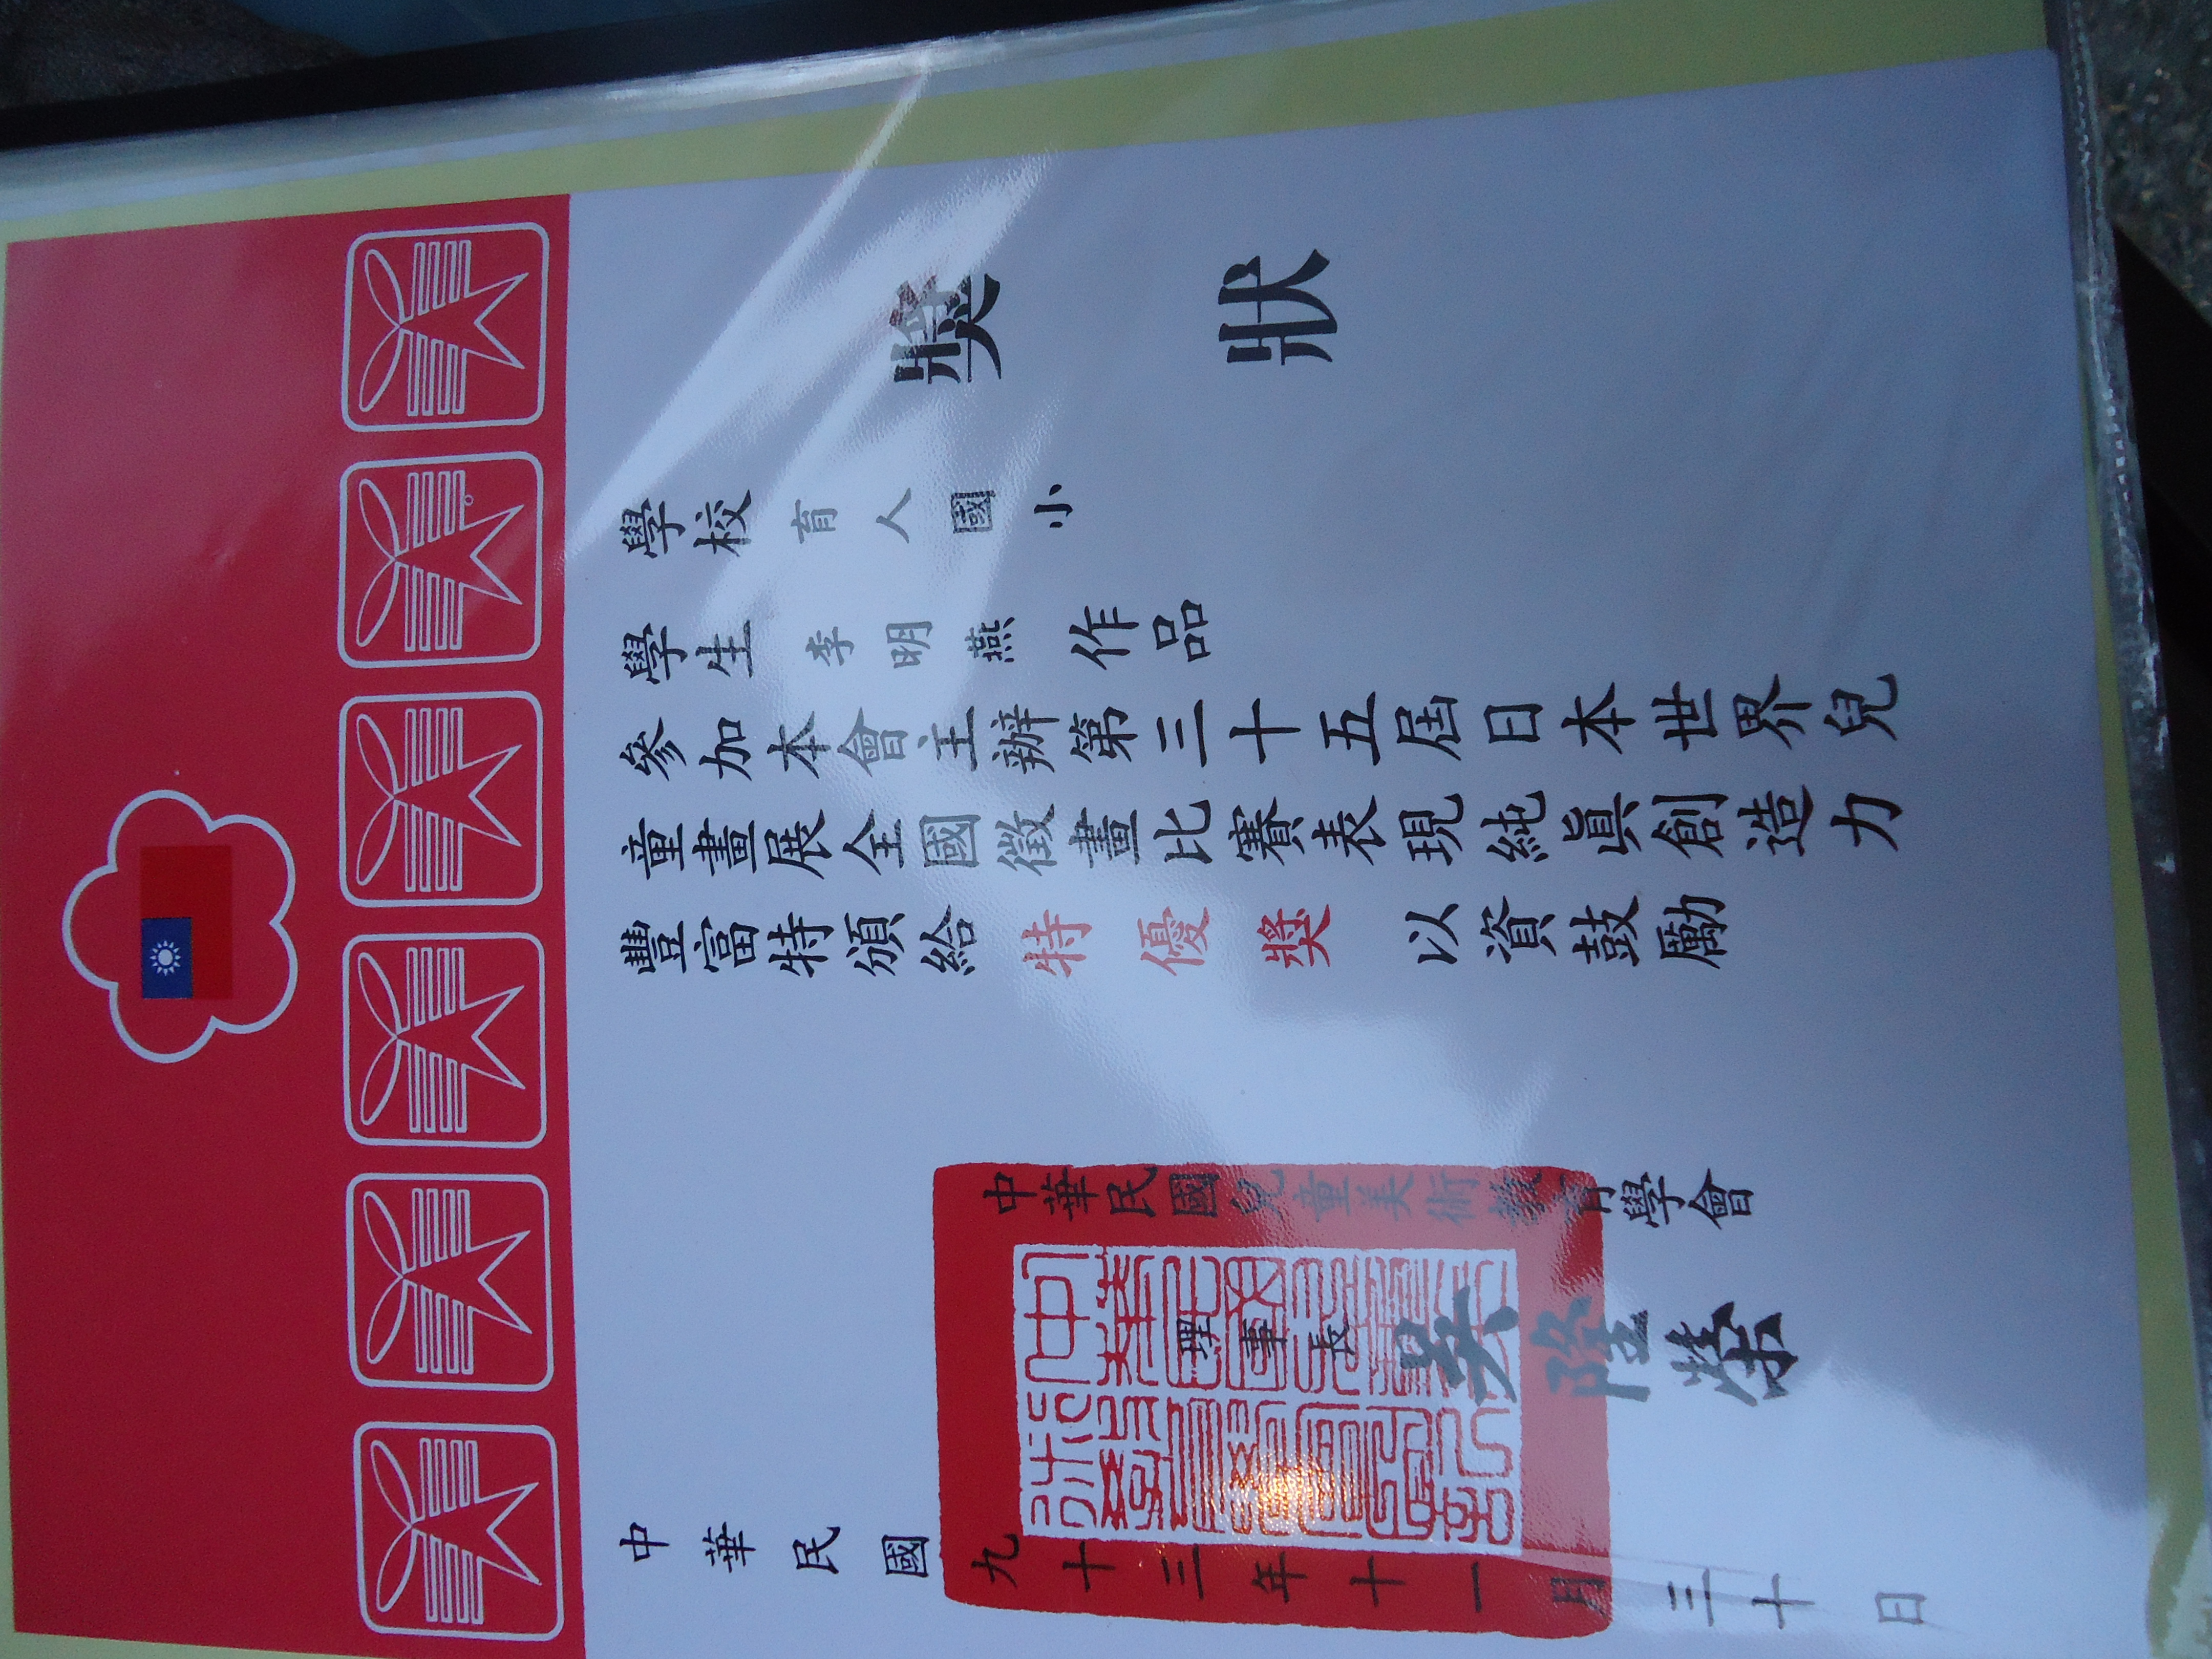 獎狀
學校 育人國小
學生 李明燕 作品
參加本會主辦第三十五屆日本世界兒
童畫展全國徵畫比賽表現純眞創造力
豐富特頒給 特優獎 以資鼓勵
中華民國兒童美術教育學會
理事長 吳隆榮
中華民國九十三年十一月三十日